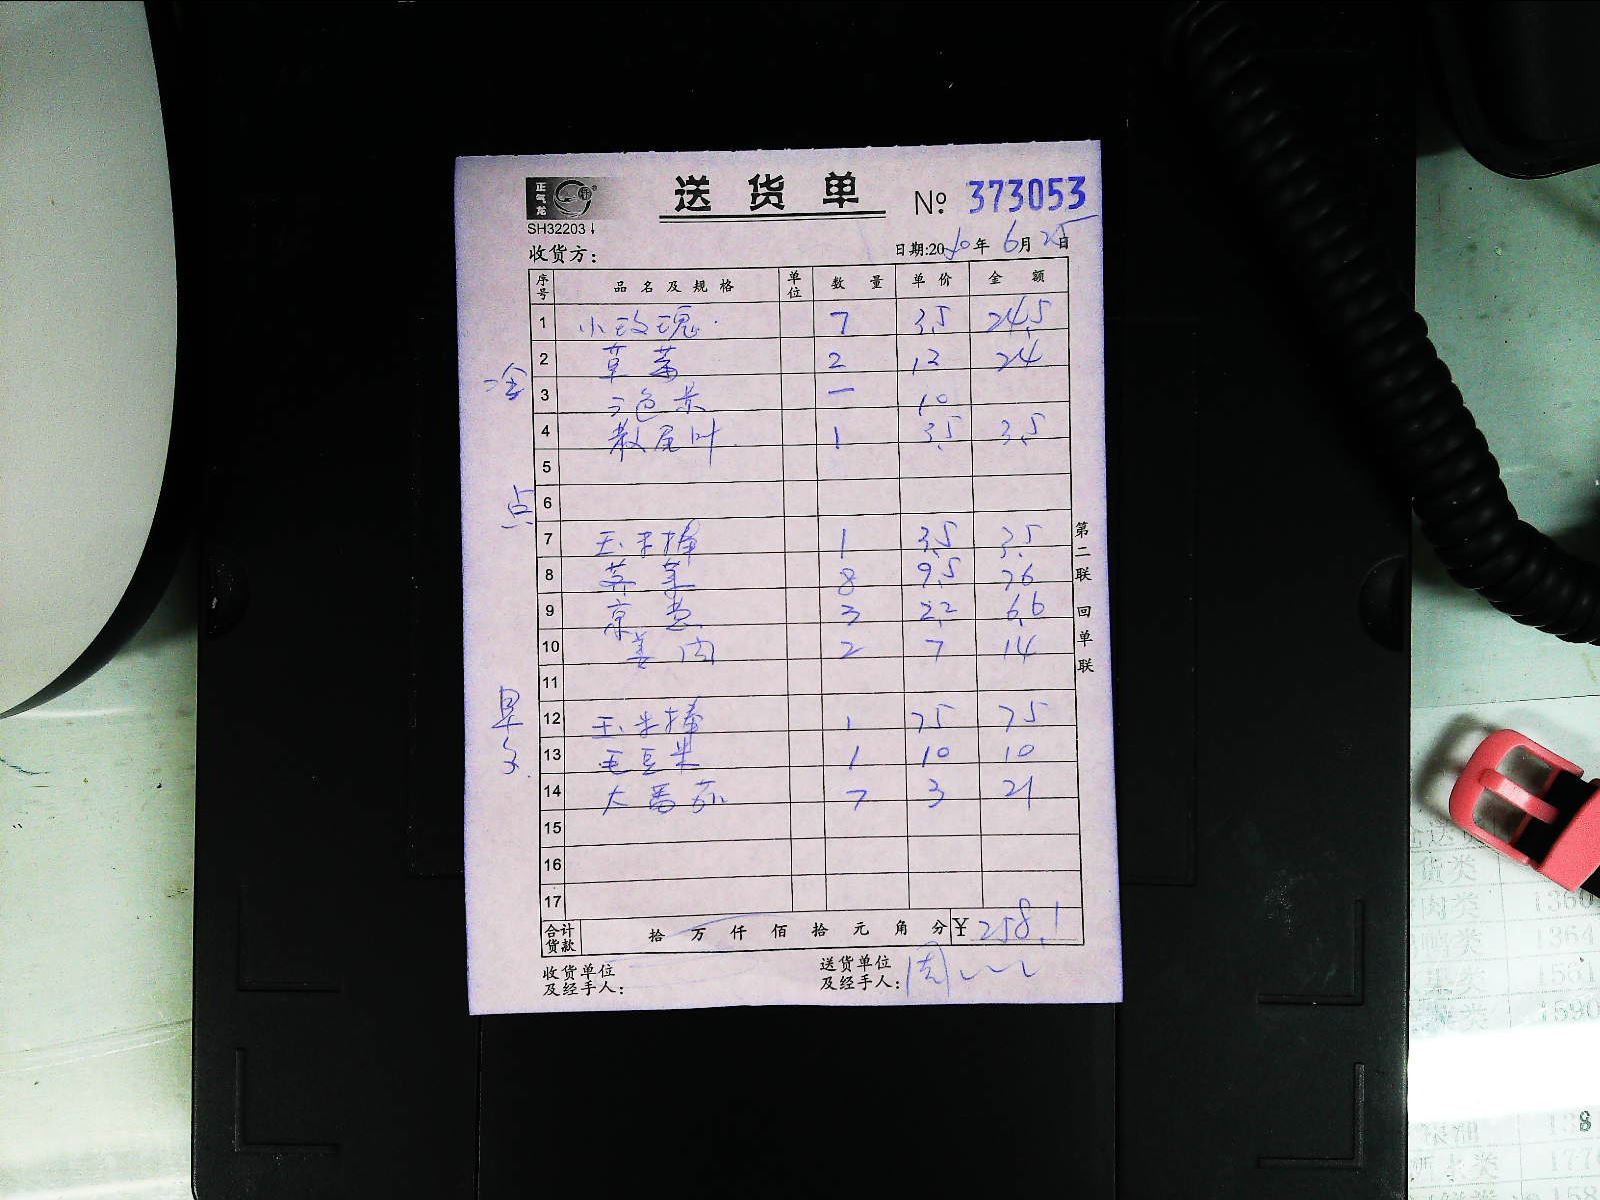 正气龙
送货单 № 373053
SH32203
收货方： 日期:2010年6月25日
序号 品名及规格 单位 数量 单价 金额
1 小玫瑰 7 3.5 24.5
2 草莓 2 12 24
冷
3 三色 一 10
4 散尾叶 1 3.5 3.5
5
6
点
7 玉米棒 1 3.5 3.5
8 8 9.5 76
9 京葱 3 2.2 6.6
10 姜肉 2 7 14
11
早
12 玉米棒 1 75 75
13 毛豆米 1 10 10
14 大番茄 7 3 21
15
16
17
合计货款 拾万仟佰拾元角分 ¥ 258.1
收货单位及经手人： 送货单位及经手人： 周
第二联 回单联
货类
肉类 1360
1364
1561
1590
水类 177